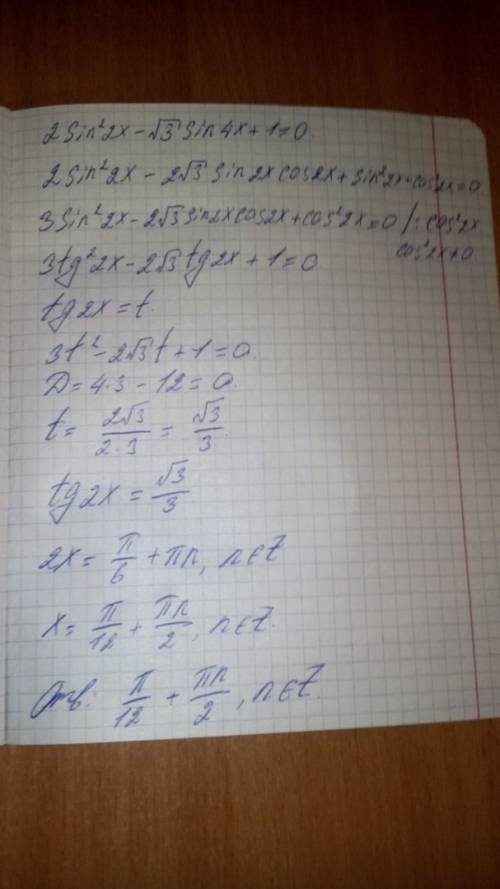 2sin²2x - √3 sin4x + 1 = 0.
2sin²2x - 2√3 sin2x cos2x + sin²2x + cos²2x = 0
3sin²2x - 2√3 sin2x cos2x + cos²2x = 0 / : cos²2x
cos²2x ≠ 0
3tg²2x - 2√3 tg2x + 1 = 0
tg2x = t.
3t² - 2√3t + 1 = 0.
D = 4·3 - 12 = 0.
t = 2√3/2·3 = √3/3.
tg2x = √3/3
2x = π/6 + πn, n∈Z
x = π/12 + πn/2, n∈Z.
Отв: π/12 + πn/2, n∈Z.